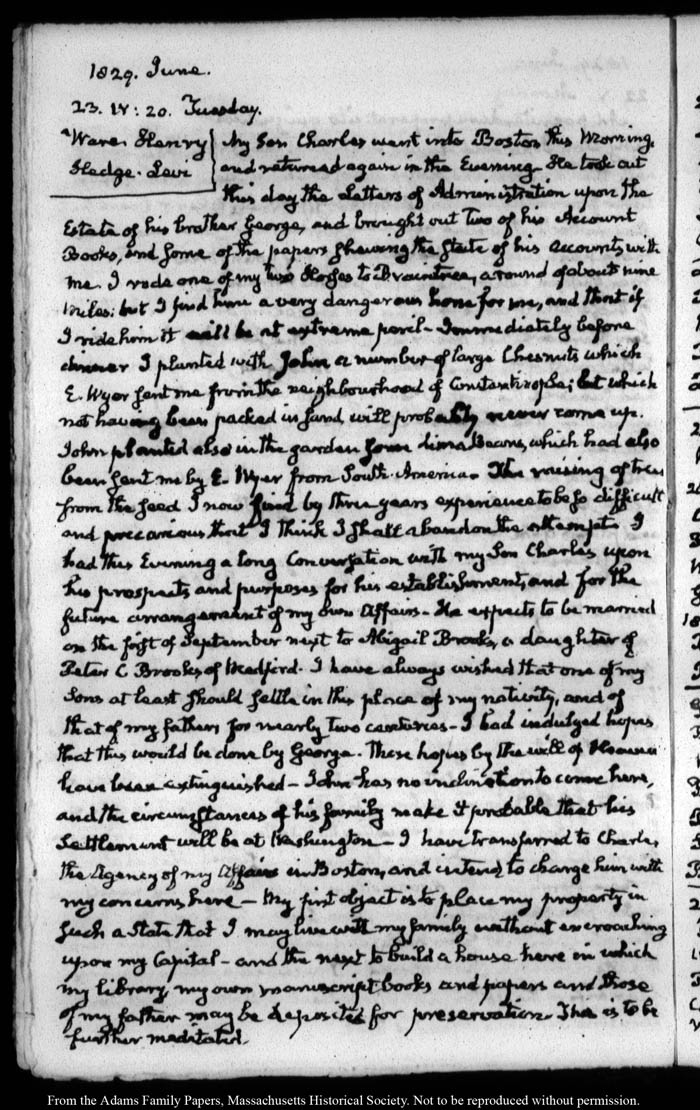 1829. June.
23. IV: 20. Tuesday.
Ware. Henry
Hedge. Levi
My Son Charles went into Boston this Morning,
and returned again in the Evening. He took out
this day the Letters of Administration upon the
Estate of his brother George, and brought out two of his Account
Books, and some of the papers shewing the State of his accounts with
me. I rode one of my two Horses to Braintree, a round of about nine
Miles: but I find him a very dangerous horse for me, and that if
I ride him it will be at extreme peril- Immediately before
dinner I planted with John a number of large Chesnuts which
E. Wyer sent me from the neighbourhood of Constantinople; but which
not having been packed in sand, will probably never come up.
John planted also in the garden some lima Beans, which had also
been sent me by E Wyer from South-America. The raising of trees
from the seed I now find by three years experience to be so difficult
and precarious that I think I shall abandon the attempt. I
had this Evening a long Conversation with my Son Charles upon
his prospects and purposes for his establishment, and for the
future arrangement of my own Affairs- He expects to be married
on the first of September next to Abigail Brooks, a daughter of
Peter C Brooks, of Medford. I have always wished that one of my
Sons at least should settle in this place of my nativity, and of
that of my fathers for nearly two centuries- I had indulged hopes
that this would be done by George. These hopes by the will of Heaven
have been extinguished- John has no inclination to come here,
and the circumstances of his family make it probable that his
Settlement will be at Washington- I have transferred to Charles,
the Agency of my Affairs in Boston, and intend to charge him with
my concerns here- My first object is to place my property in
such a State that I may live with my family without encroaching
upon my Capital- and the next to build a house here in which
my library, my own manuscript books and papers and those
of my father may be deposited for preservation. This is to be
further meditated.
From the Adams Family Papers, Massachusetts Historical Society. Not to be reproduced without permission.